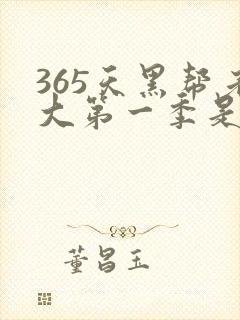 365天黑帮老
大第一季是
董昌玉